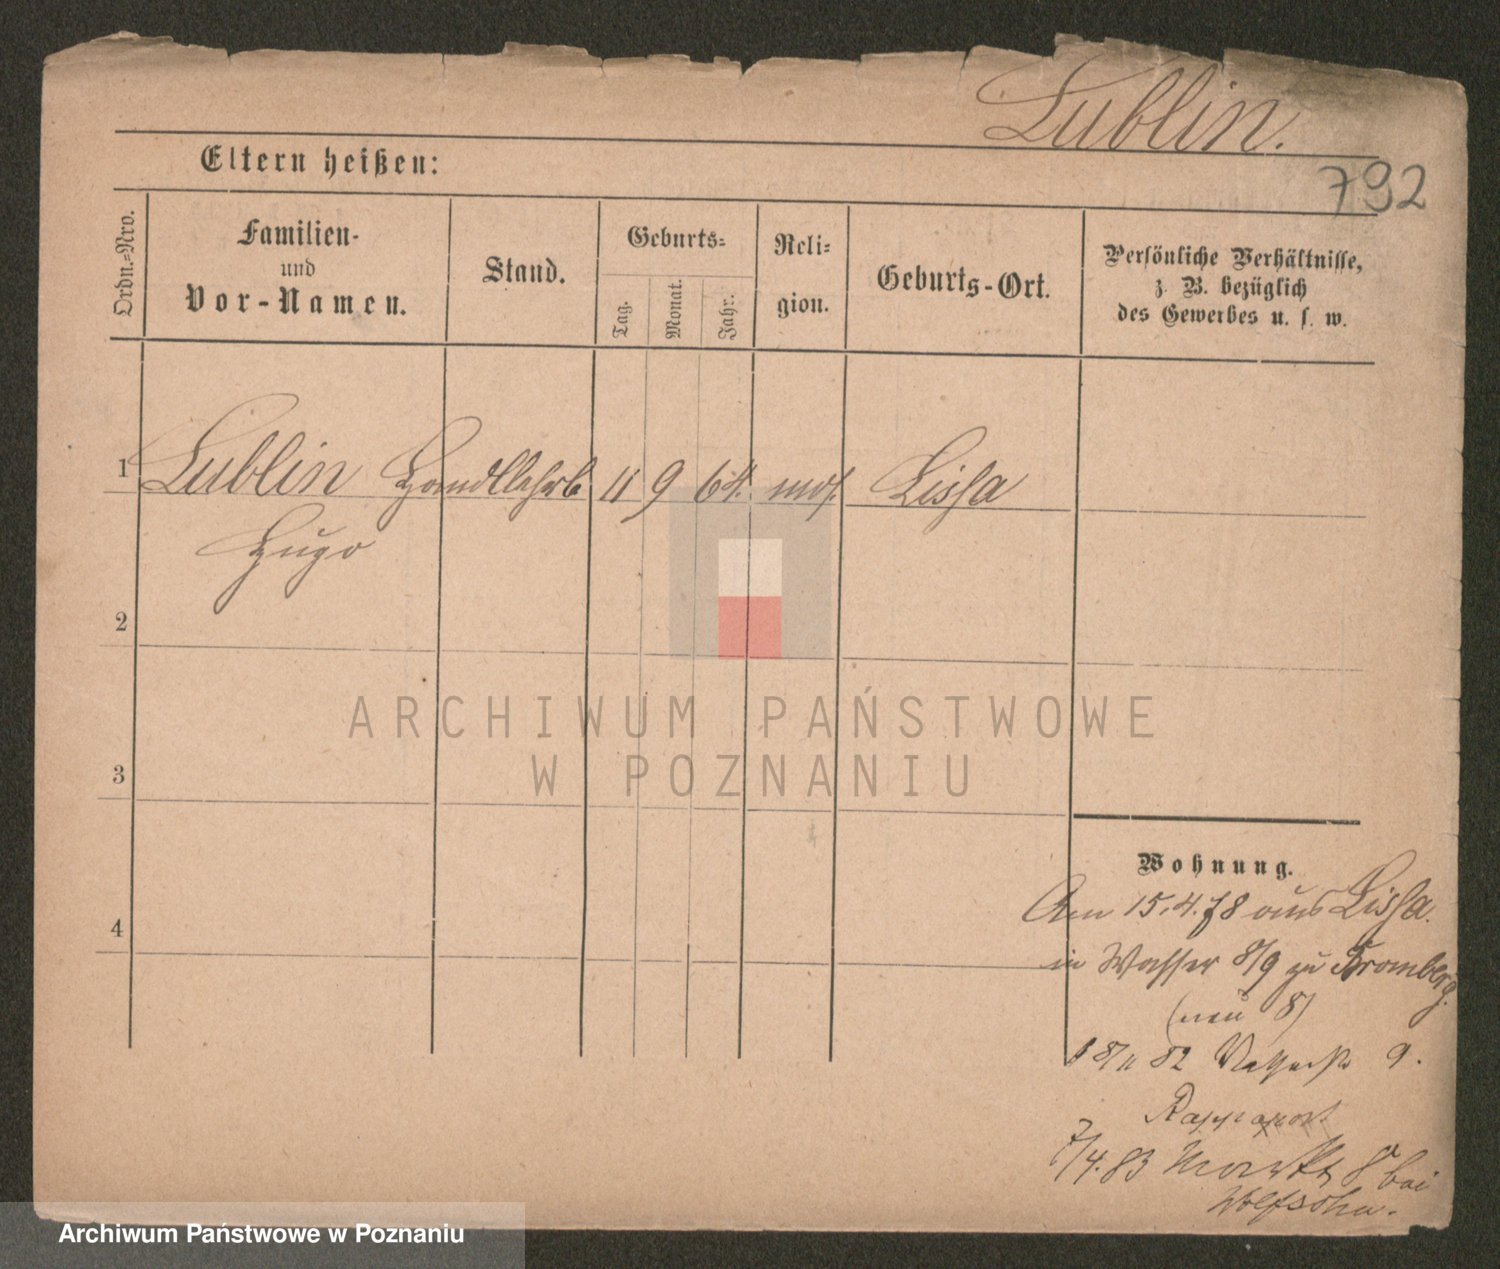 Lublin.
792
Eltern heißen:
Ordn.=Nro.
Familien-
und
Vor-Namen.
Stand.
Geburts=
Tag.
Monat.
Jahr.
Reli=
gion.
Geburts-Ort.
Persönliche Verhältnisse,
z. B. bezüglich
des Gewerbes u. s. w.
1 Lublin Handllehrl 11 9 64. mos. Lissa
Hugo
2
3
4
ARCHIWUM PAŃSTWOWE
W POZNANIU
Wohnung.
Am 15.4.78 aus Lissa.
in Wasser 8/9 zu Bromberg.
(neu 8)
8/11 82 9.
Rappaport
7/4.83 Markt 8 bei
Wolfsohn.
Archiwum Państwowe w Poznaniu